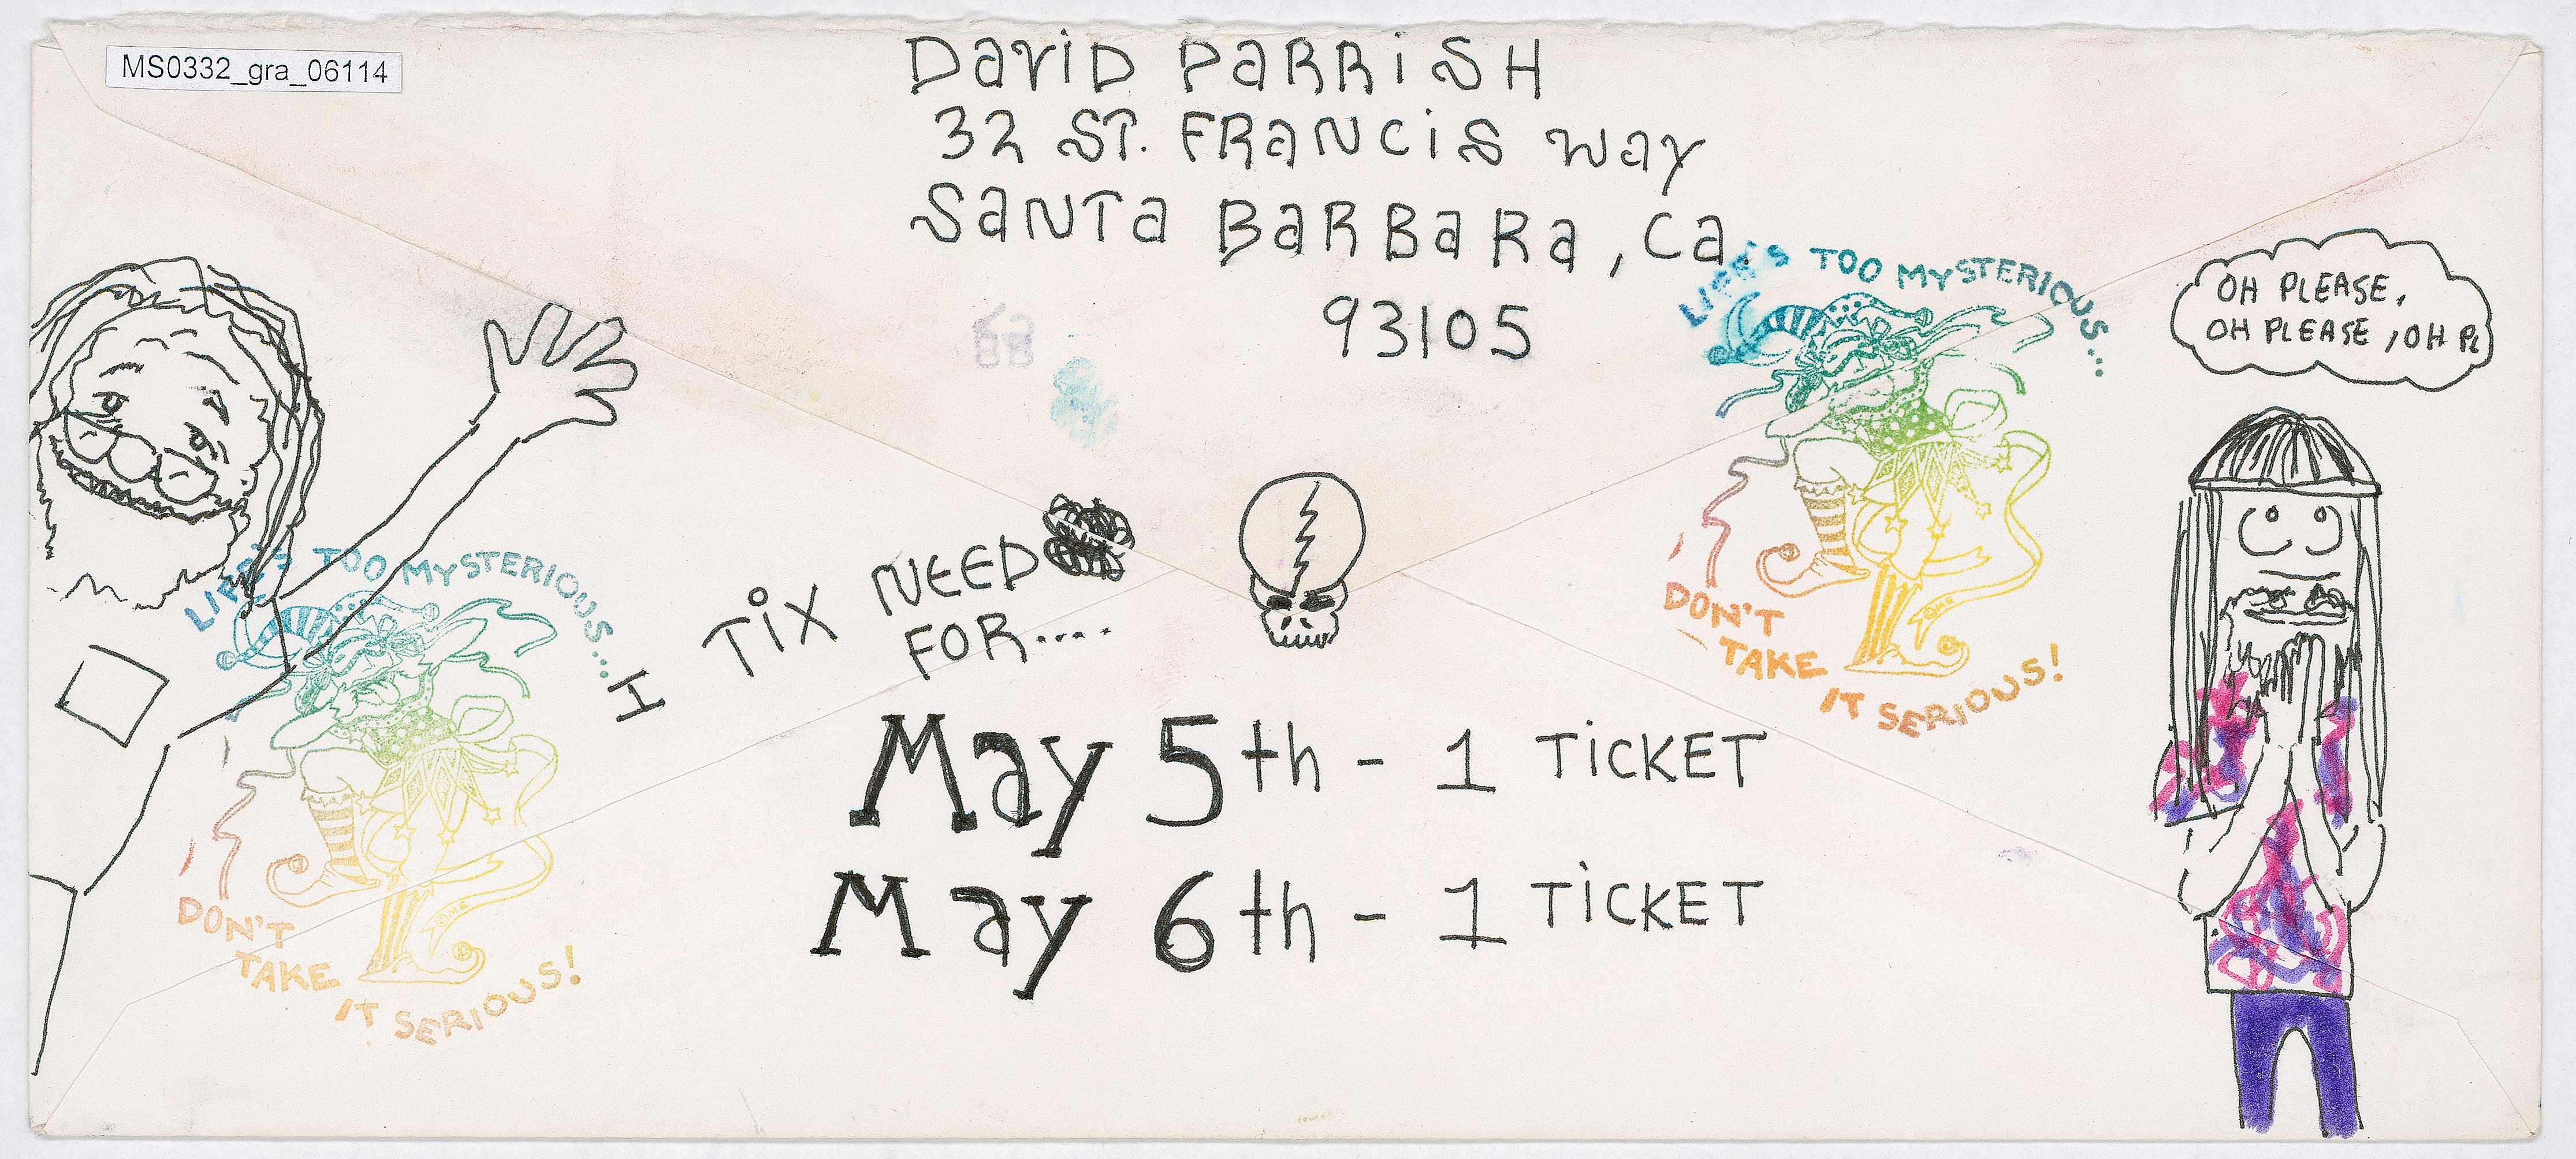 MS0332_gra_06114
DaviD PaRRiSH
32 ST. FRANCiS Way
SaNTa BaRBaRa, Ca
93105
LIFE'S TOO MYSTERIOUS...
DON'T
TAKE
IT SERIOUS!
OH PLEASE,
OH PLEASE, OH PL
LIFE'S TOO MYSTERIOUS...
DON'T
TAKE
IT SERIOUS!
I TiX NEED
FOR....
May 5th - 1 TiCKET
May 6th - 1 TiCKET